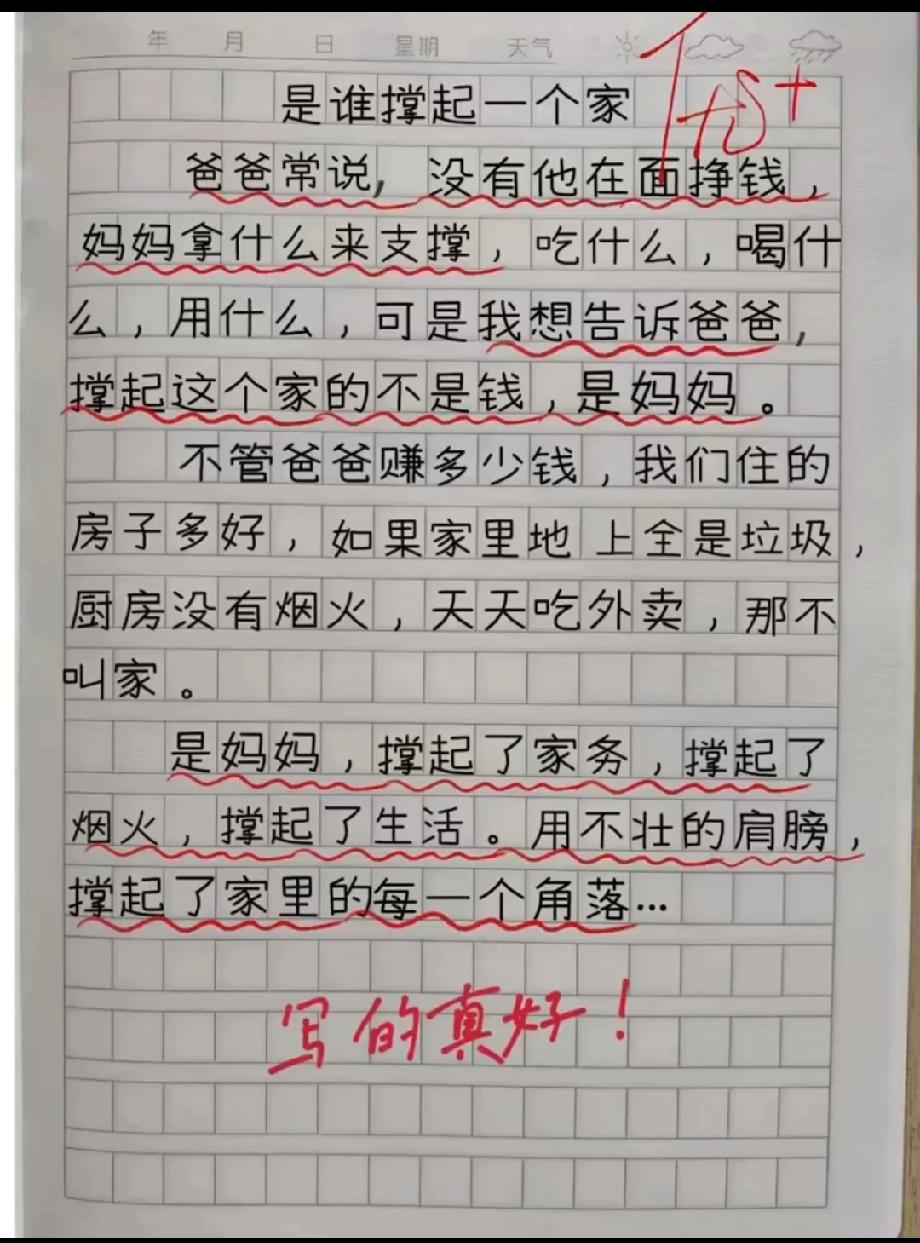 年 月 日 星期 天气
是谁撑起一个家
优+
爸爸常说，没有他在面挣钱，
妈妈拿什么来支撑，吃什么，喝什
么，用什么，可是我想告诉爸爸，
撑起这个家的不是钱，是妈妈。
不管爸爸赚多少钱，我们住的
房子多好，如果家里地上全是垃圾，
厨房没有烟火，天天吃外卖，那不
叫家。
是妈妈，撑起了家务，撑起了
烟火，撑起了生活。用不壮的肩膀，
撑起了家里的每一个角落…
写的真好！